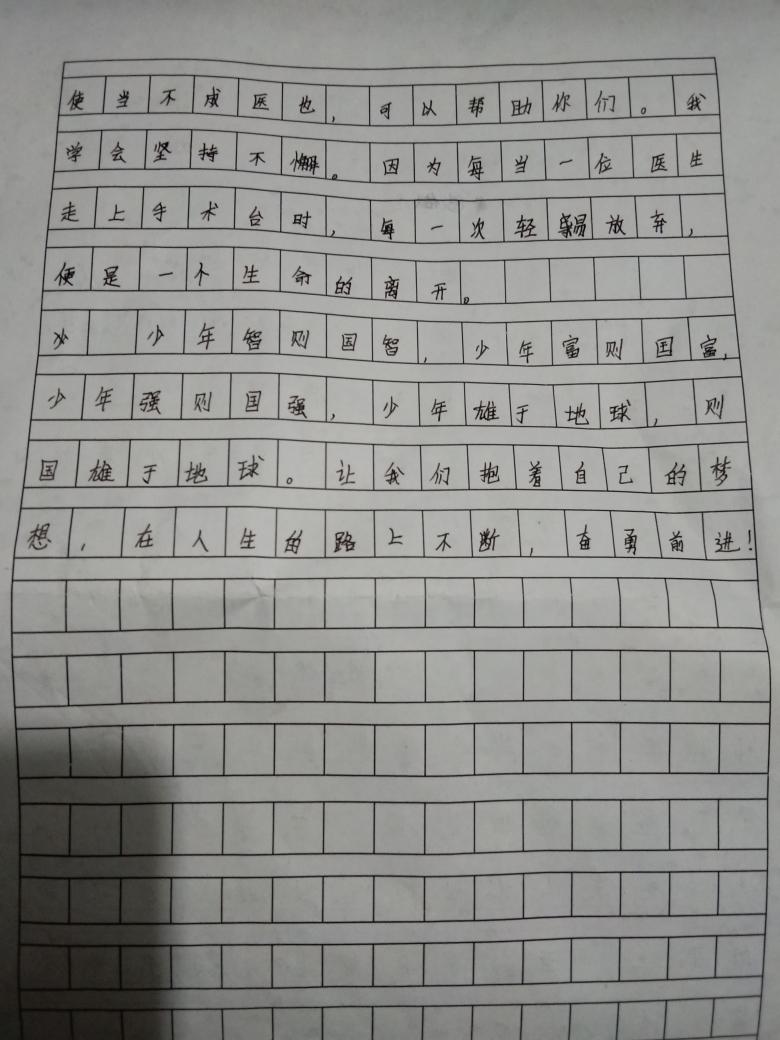 使当不成医也，可以帮助你们。我
学会坚持不懈。因为每当一位医生
走上手术台时，每一次轻易放弃，
便是一个生命的离开。
少年智则国智，少年富则国富，
少年强则国强，少年雄于地球，则
国雄于地球。让我们抱着自己的梦
想，在人生的路上不断，奋勇前进！